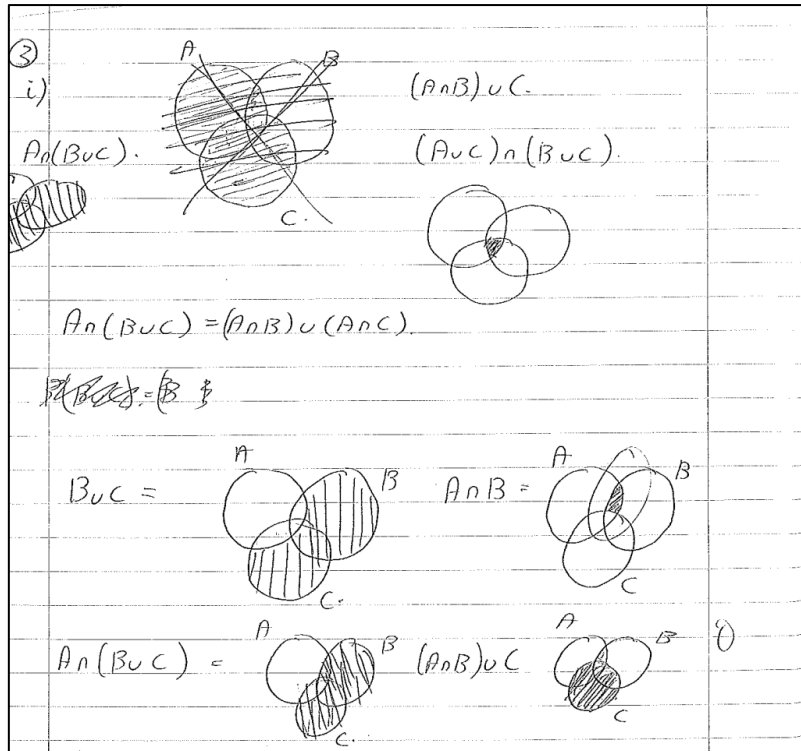 3
i)
A B
(A∩B)∪C.
A∩(B∪C).
(A∪C)∩(B∪C).
C.
A∩(B∪C) = (A∩B)∪(A∩C).
B∪C =
A
B
C.
A∩B =
A
B
C
A∩(B∪C) =
A
B
C.
(A∩B)∪C
A
B
C